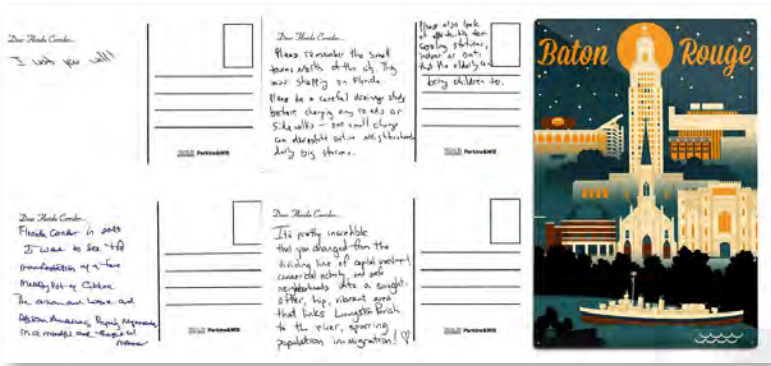 Dear Florida Corridor,
I wish you well!
Perkins&Will
Dear Florida Corridor,
Please remember the small
towns North of the city. They
are shopping on Florida.
Please do a careful drainage study
before changing any roads or
sidewalks – one small change
can devastate entire neighborhoods
during big storms.
Please also look
at
cooling stations,
indoor or out,
that the elderly can
bring children to.
Perkins&Will
Dear Florida Corridor,
Florida Corridor in
I want to see the
manifestation of a true
Melting Pot of Culture
The asian and
African Americans,
in a mindful and
manner
Perkins&Will
Dear Florida Corridor,
It's pretty incredible
that you changed from the
dividing line of capital investment,
commercial activity, and safe
neighborhoods into a sought-
after, hip, vibrant area
that links Livingston Parish
to the river, spurring
population in-migration! ♡
Perkins&Will
Baton Rouge